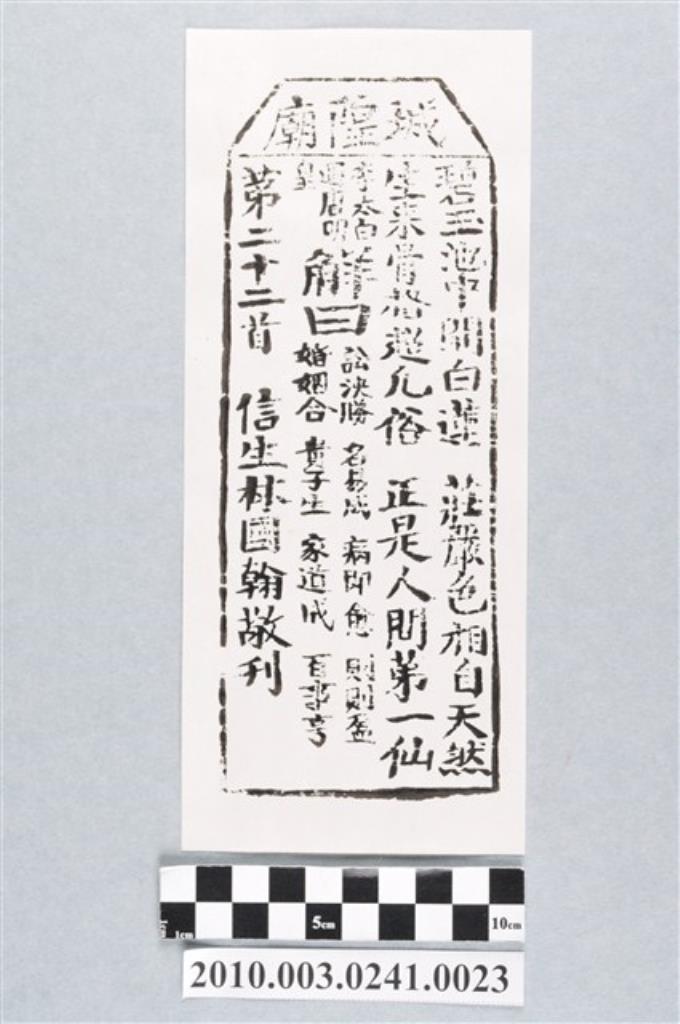 城隍廟
碧玉池中開白蓮 莊嚴色相自天然
生來骨格超凡俗 正是人間第一仙
李太白
遇唐明
皇
解曰
訟決勝 名易成 病即愈 財則盈
婚姻合 貴子生 家道成 百事亨
第二十二首 信生林國翰敬刊
1cm
5cm
10cm
2010.003.0241.0023